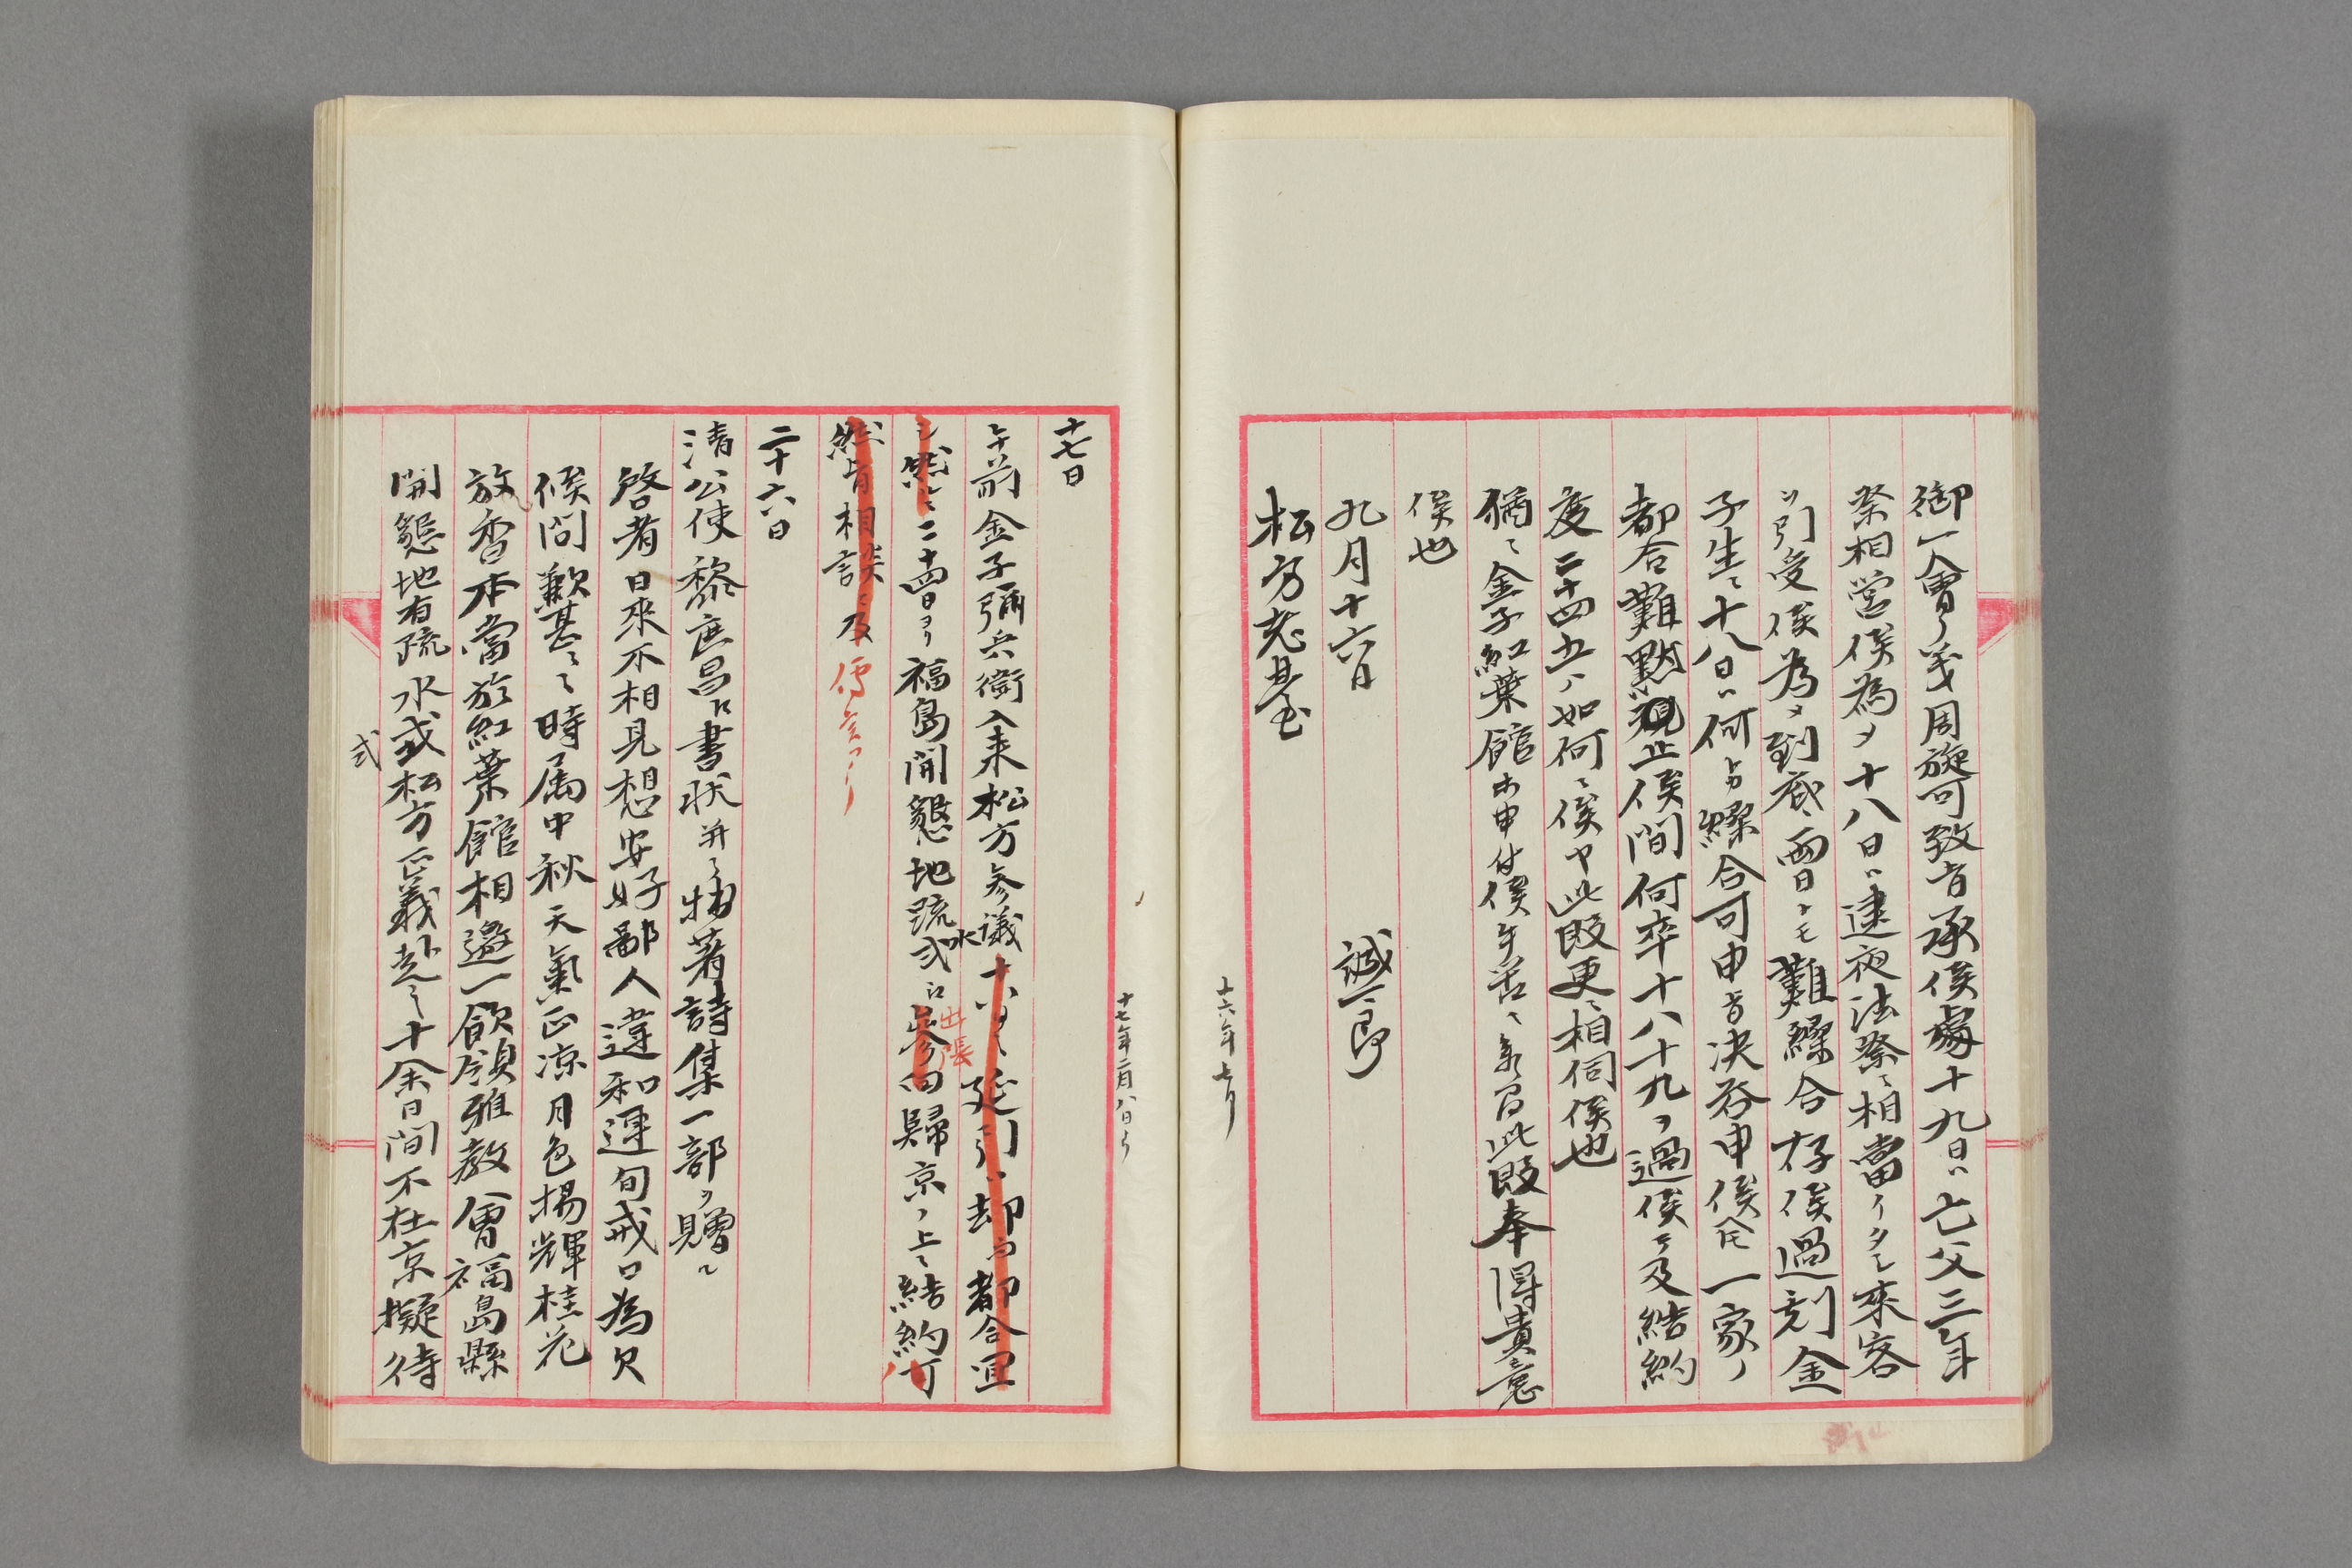 御一會ノ義周旋可致旨承候處十九日ハ亡父三年
祭相営候為メ十八日ハ逮夜法祭ニ相當イタシ來客
ヲ引受候為メ到底両日トモ難繰合存候過刻金
子生ニ十八日ハ何トカ繰合可申旨決答申候得共一家ノ
都合難黙視止候間何卒十八十九ヲ過候テ及結約
度二十四五ハ如何ニ候ヤ此段更ニ相伺候也
猶ニ金子紅葉館 申付候 此段奉得貴意
候也
九月十六日 誠一郎
松方老臺
十六年七月
十七年二月八日
十七日
午前金子彌兵衛入来松方参議十 延引ハ却而都合宜
シ然ルニ二十四日ヨリ福島開懇地疏水式ニ参向出張歸京ノ上ニ結約可
然旨相談ニ及
二十六日
清公使黎庶昌ヘ書状并ニ拙著詩集一部ヲ贈ル
啓者日來不相見想安好鄙人違和遷旬戒口為欠
候問歉甚ニ時属中秋天氣正凉月色揚輝桂花
放香本當於紅葉館相邀一飲領雅教會福島縣
開懇地有疏水式松方正義赴之十余日間不在京擬待
式